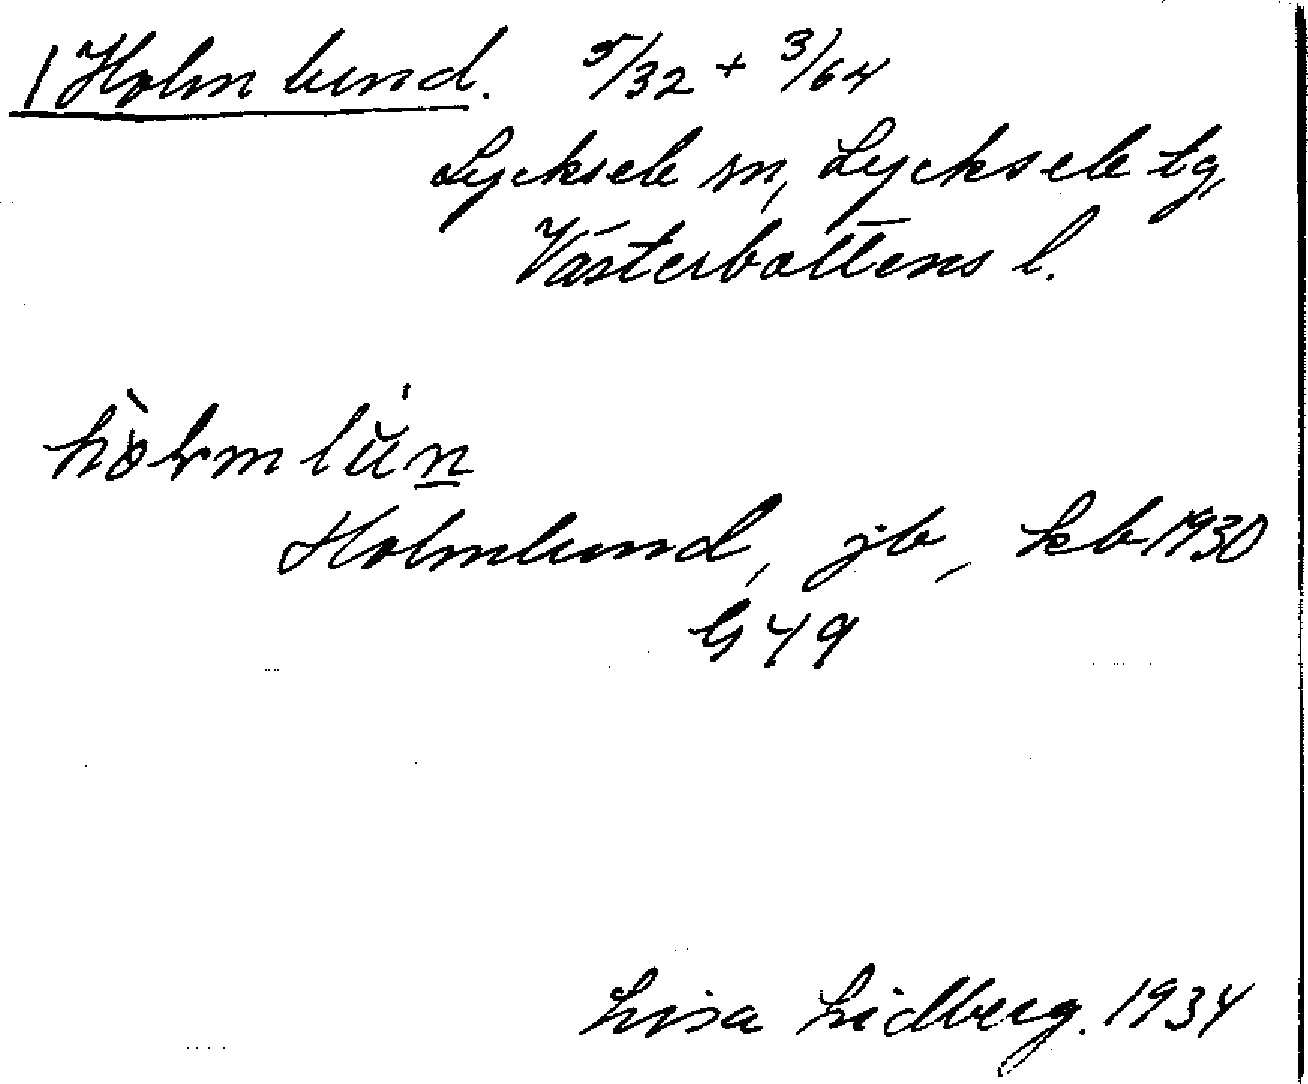 1 Holmlund. 5/32 + 3/64
Lycksele sn, Lycksele tg,
Västerbottens l.
Holmlund, jb, kb 1930
G 49
Lisa Lidberg. 1934